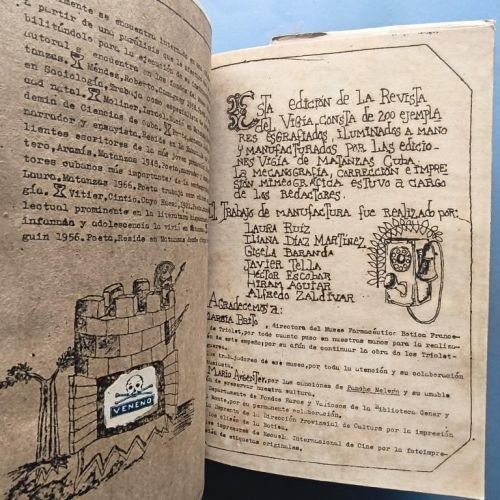 mente se encuentra internado en
A partir de una parálisis que lo
bilitándolo para la ejecución de
autoral se encuentra en los fondos del
tanzas. Méndez, Roberto, Camagüey
en Sociología, Trabaja como especialista
ud natal. Moliner, Israel
demia de Ciencias de Cuba.
narrador y ensayista, Reside en Matanzas
lientes escritores de la más joven
tero, Aramís, Matanzas 1948, Poeta, narrador
tores cubanos más importantes de la
Lauro, Matanzas 1966, Poeta trabaja
gía. Vitier, Cintio, Cayo Hueso, 1921
lectual prominente en la literatura
infancia y adolescencia la vivió en Matanzas
guín 1956. Poeta, Reside en Matanzas desde
VENENO
Esta edición de La Revista
del Vigía, consta de 200 ejempla
res esgrafiados, iluminados a mano
y manufacturados por las edicio-
nes Vigía de Matanzas Cuba.
La mecanografía, corrección e impre
sión mimeográfica estuvo a cargo
de los redactores.
El Trabajo de manufactura fue realizado por:
Laura Ruiz
Iliana Díaz Martínez
Gisela Baranda
Javier Tella
Héctor Escobar
Hiram Aguiar
Alfredo Zaldívar
Agradecemos a:
, directora del Museo Farmacéutico Botica France-
de Triolet, por todo cuanto puso en nuestras manos para la realiza-
de este empeño; por su afán de continuar la obra de los Triolet-
los trabajadores de este museo, por toda la atención y su colaboración
Mario Argenter, por las canciones de Pancho Melero y su amable
de preservar nuestra cultura.
Departamento de Fondos Raros y Valiosos de la Biblioteca Gener y
Monte, por su permanente colaboración.
Imprenta de la Dirección Provincial de Cultura por la impresión
de la Botica.
los impresores de Escuela Internacional de Cine por la fotoimpre-
de etiquetas originales.